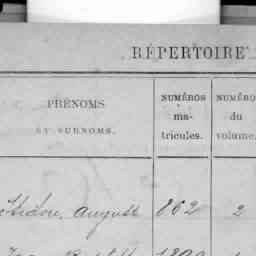 RÉPERTOIRE
PRÉNOMS
ET SURNOMS.
NUMÉROS
ma-
tricules.
NUMÉROS
du
volume.
Isidore, Auguste 862 2